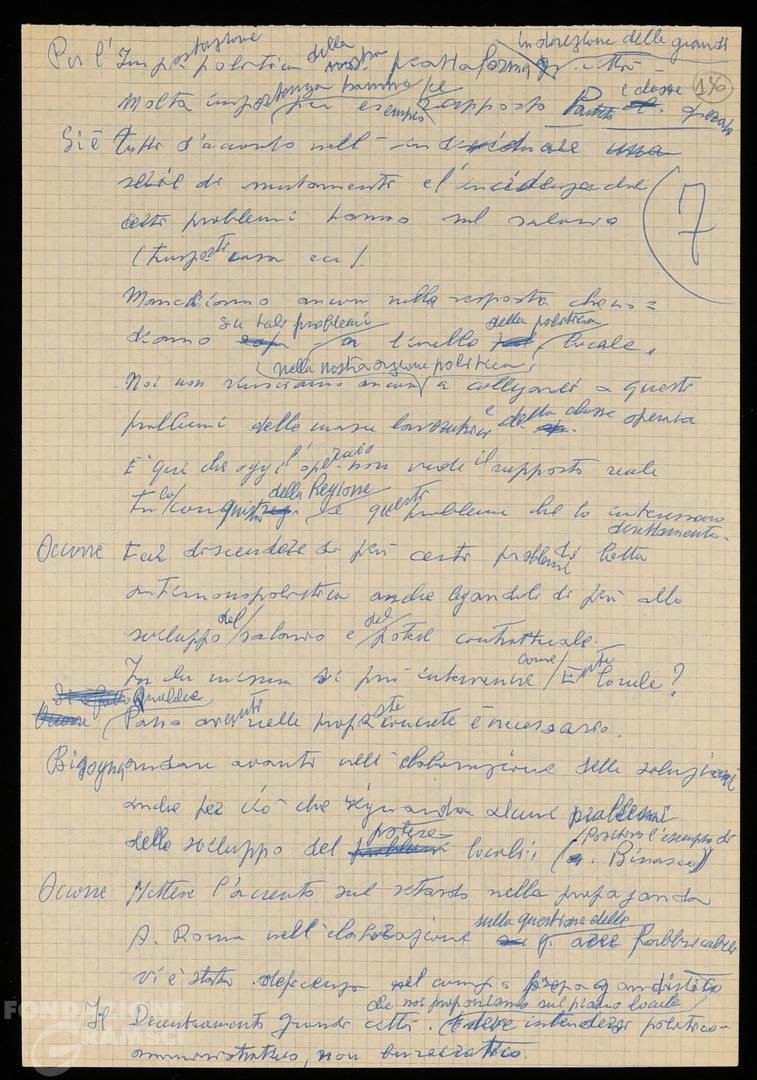 in direzione delle grandi
Per l'Impostazione politica della nostra piattaforma città
Molta importanza hanno per esempio rapporto Partito e classe operaia
146
Si è tutti d'accordo nell'individuare una
serie di mutamenti e l'incidenza che
7
certi problemi hanno sul salario
(trasporti casa ecc).
Manchiamo ancora nella risposta che no=
diamo su tali problemi a livello della politica locale.
Noi non riusciamo ancora nella nostra azione politica a collegarci a questi
problemi delle masse lavoratrici e della classe operaia
È qui che oggi l'operaio non vede il rapporto reale
tra la conquista della Regione e questi problemi che lo interessano
direttamente.
Occorre far discendere di più certi problemi lotta
antimonopolistica anche legandoli di più allo
sviluppo del salario e del poter contrattuale.
In che misura si può intervenire come Ente locale?
Qualche
Passo avanti nelle proposte concrete è necessario.
Bisogna andare avanti nell'elaborazione delle soluzioni
anche per ciò che riguarda alcuni problemi
dello sviluppo del potere locale: (Positivo l'esempio di
Binasco)
Occorre Mettere l'accento sul ritardo nella propaganda
A Roma nell'elaborazione sulla questione delle aree fabbricabili
vi è stata deficienza nel campo propagandistico
che noi proponiamo sul piano locale
Il Decentramento grandi città deve intendersi politico-
amministrativo, non burocratico.
FONDAZIONE
GRAMSCI